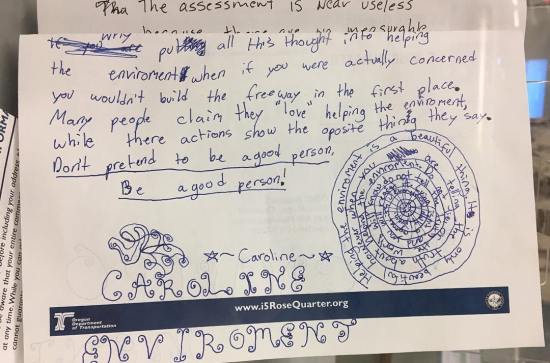 Tha The assessment is near useless
because there are no measurable
Why put all this thought into helping
the enviroment when if you were actually concerned
you wouldn't build the freeway in the first place.
Many people claim they "love" helping the enviroment,
while there actions show the opposite thing they say.
Don't pretend to be a good person,
Be a good person!
Helping the enviroment is a beautiful thing. It is only beautiful
~Caroline~
CAROLINE
www.i5RoseQuarter.org
Oregon
Department
of Transportation
ENVIROMENT
before including your address
be aware that your entire comment
at any time. While you can
cannot guarantee